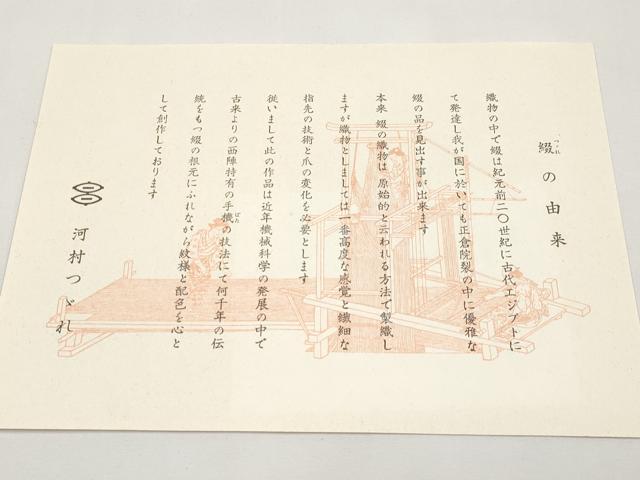 綴の由来
つづれ
織物の中で綴は紀元前二〇世紀に古代エジプトに
て発達し我が国に於いても正倉院裂の中に優雅な
綴の品を見出す事が出来ます
本来 綴の織物は 原始的と云われる方法で製織し
ますが織物としましては一番高度な感覚と繊細な
指先の技術と爪の変化を必要とします
従いまして此の作品は近年機械科学の発展の中で
古来よりの西陣特有の手機の技法にて何千年の伝
ばた
統をもつ綴の根元にふれながら紋様と配色を心と
して創作しております
河村つづれ